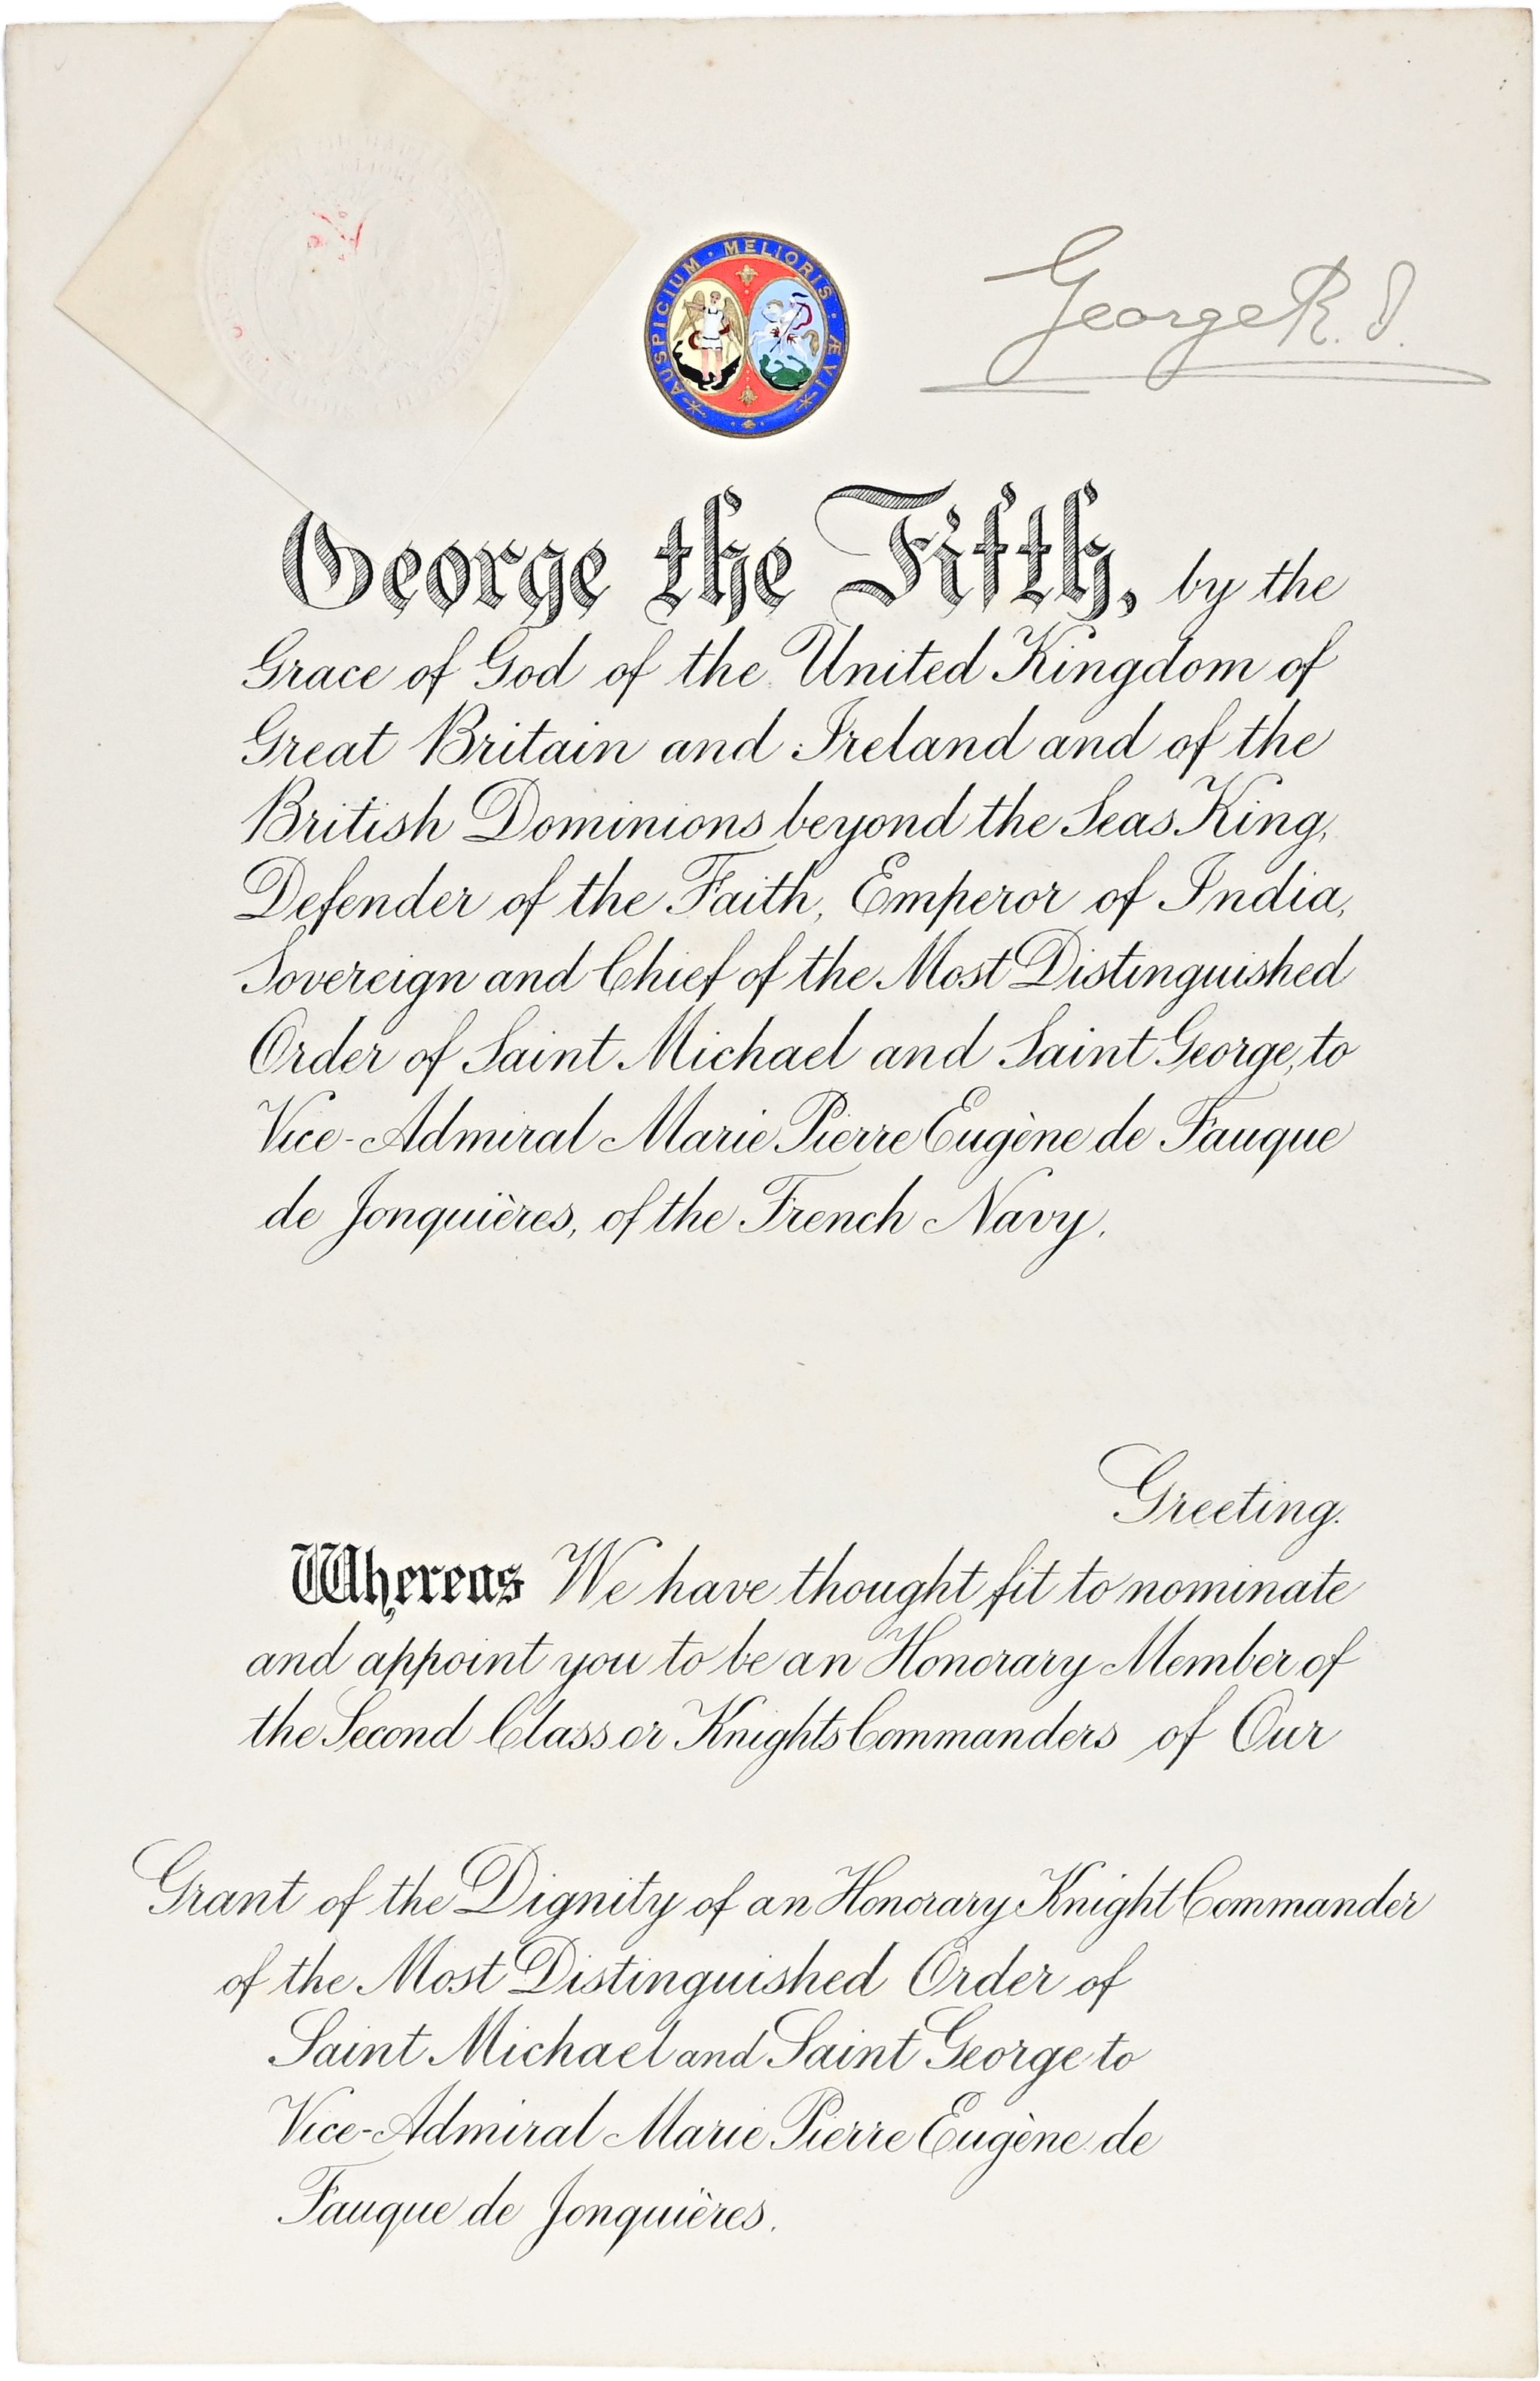 AUSPICIUM · MELIORIS · ÆVI
George R. I.
George the Fifth, by the
Grace of God of the United Kingdom of
Great Britain and Ireland and of the
British Dominions beyond the Seas King,
Defender of the Faith, Emperor of India,
Sovereign and Chief of the Most Distinguished
Order of Saint Michael and Saint George, to
Vice-Admiral Marie Pierre Eugène de Fauque
de Jonquières, of the French Navy.
Greeting.
Whereas We have thought fit to nominate
and appoint you to be an Honorary Member of
the Second Class or Knights Commanders of Our
Grant of the Dignity of an Honorary Knight Commander
of the Most Distinguished Order of
Saint Michael and Saint George to
Vice-Admiral Marie Pierre Eugène de
Fauque de Jonquières.